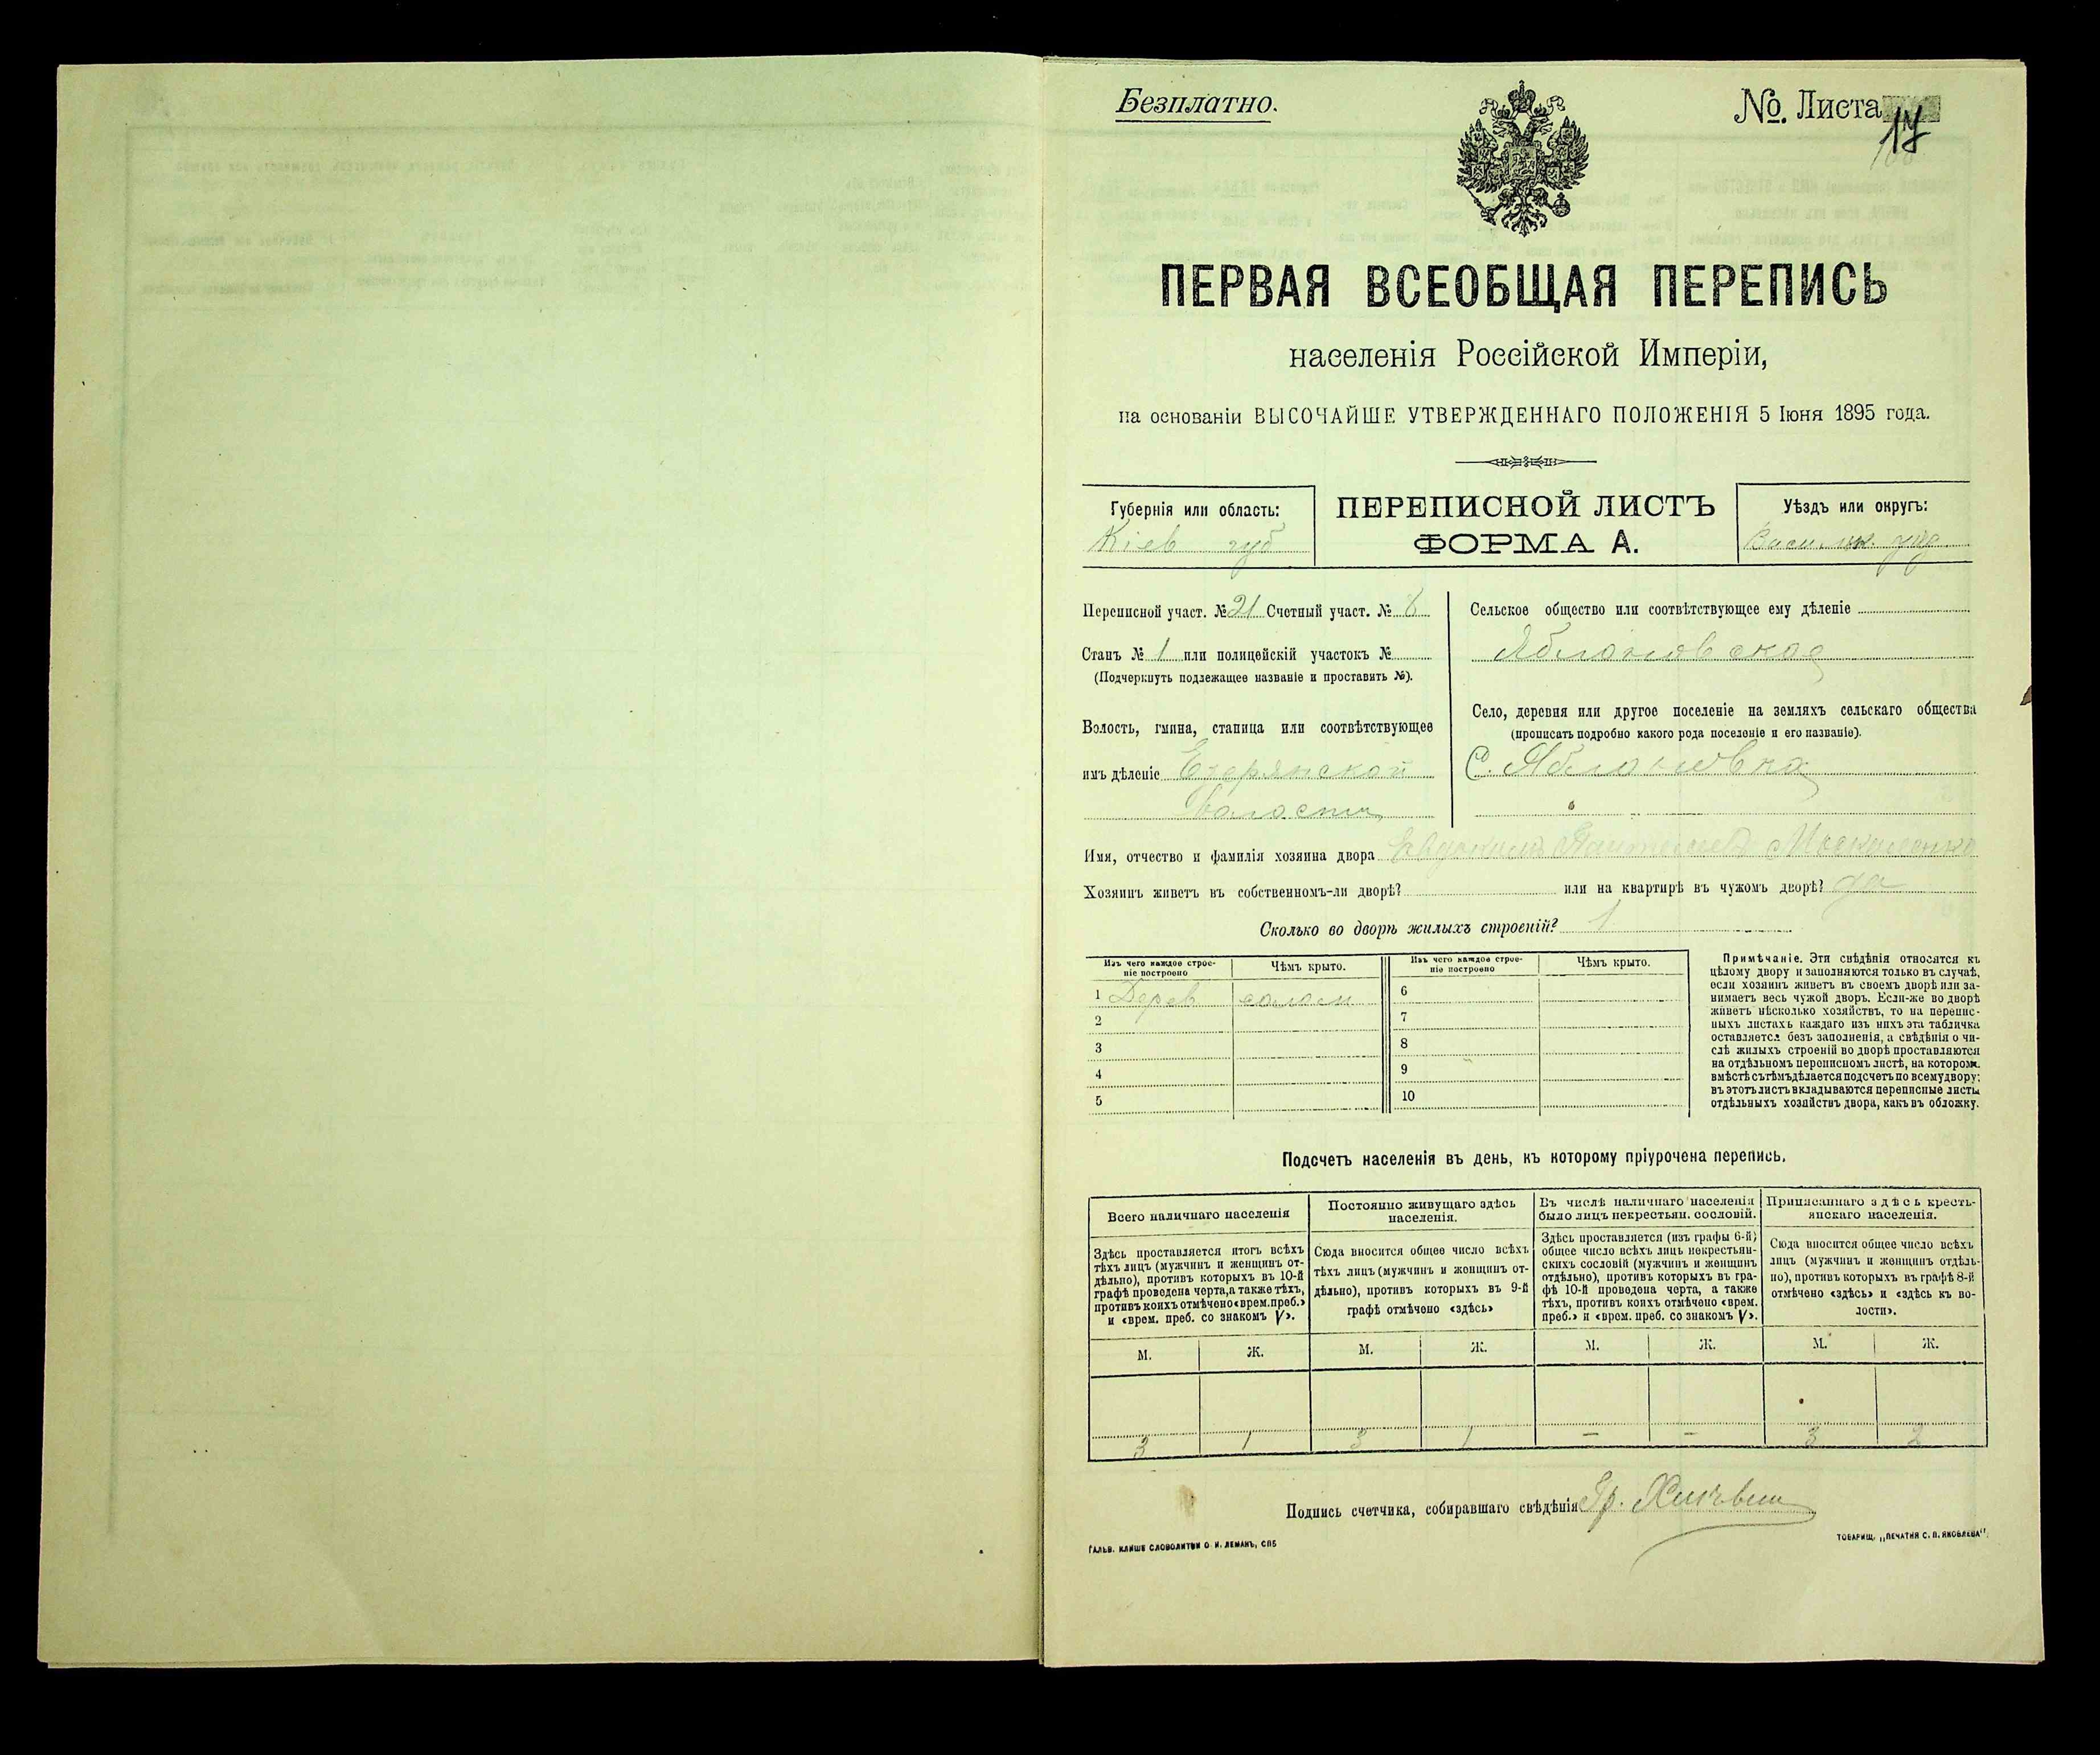 Безплатно.
№ Листа 17
ПЕРВАЯ ВСЕОБЩАЯ ПЕРЕПИСЬ
населенія Россійской Имперіи,
на основаніи ВЫСОЧАЙШЕ УТВЕРЖДЕННАГО ПОЛОЖЕНІЯ 5 Іюня 1895 года.
Губернія или область:
Кіев губ
ПЕРЕПИСНОЙ ЛИСТЪ
ФОРМА А.
Уѣздъ или округъ:
Переписной участ. № 21 Счетный участ. № 8
Станъ № 1 или полицейскій участокъ №
(Подчеркнуть подлежащее названіе и проставить №).
Волость, гмина, станица или соотвѣтствующее
имъ дѣленіе Езерянской
Волости
Сельское общество или соотвѣтствующее ему дѣленіе
Яблоновское
Село, деревня или другое поселеніе на земляхъ сельскаго общества
(прописать подробно какого рода поселеніе и его названіе).
С. Яблоновка
Имя, отчество и фамилія хозяина двора
Хозяинъ живетъ въ собственномъ-ли дворѣ? или на квартирѣ въ чужомъ дворѣ? да
Сколько во дворѣ жилыхъ строеній? 1
Изъ чего каждое строе-
ніе построено
Чѣмъ крыто.
Изъ чего каждое строе-
ніе построено
Чѣмъ крыто.
1 Дерев солом
2
3
4
5
6
7
8
9
10
Примѣчаніе. Эти свѣдѣнія относятся къ
цѣлому двору и заполняются только въ случаѣ,
если хозяинъ живетъ въ своемъ дворѣ или за-
нимаетъ весь чужой дворъ. Если-же во дворѣ
живетъ нѣсколько хозяйствъ, то на перепис-
ныхъ листахъ каждаго изъ нихъ эта табличка
оставляется безъ заполненія, а свѣдѣнія о чи-
слѣ жилыхъ строеній во дворѣ проставляются
на отдѣльномъ переписномъ листѣ, на котором
вмѣстѣ съ тѣмъ дѣлается подсчетъ по всему двору;
въ этотъ листъ вкладываются переписные листы
отдѣльныхъ хозяйствъ двора, какъ въ обложку.
Подсчетъ населенія въ день, къ которому пріурочена перепись.
Всего наличнаго населенія
Здѣсь проставляется итогъ всѣхъ
тѣхъ лицъ (мужчинъ и женщинъ от-
дѣльно), противъ которыхъ въ 10-й
графѣ проведена черта, а также тѣхъ,
противъ коихъ отмѣчено «врем. преб.»
и «врем. преб. со знакомъ V».
Постоянно живущаго здѣсь
населенія.
Сюда вносится общее число всѣхъ
тѣхъ лицъ (мужчинъ и женщинъ от-
дѣльно), противъ которыхъ въ 9-й
графѣ отмѣчено «здѣсь»
Въ числѣ наличнаго населенія
было лицъ некрестьян. сословій.
Здѣсь проставляется (изъ графы 6-й)
общее число всѣхъ лицъ некрестьян-
скихъ сословій (мужчинъ и женщинъ
отдѣльно), противъ которыхъ въ гра-
фѣ 10-й проведена черта, а также
тѣхъ, противъ коихъ отмѣчено «врем.
преб.» и «врем. преб. со знакомъ V».
Приписаннаго здѣсь кресть-
янскаго населенія.
Сюда вносится общее число всѣхъ
лицъ (мужчинъ и женщинъ отдѣль-
но), противъ которыхъ въ графѣ 8-й
отмѣчено «здѣсь» и «здѣсь къ во-
лости».
М. Ж. М. Ж. М. Ж. М. Ж.
3 1 3 1 – – 3 2
Подпись счетчика, собиравшаго свѣдѣнія Гр.
ГАЛЬВ. КЛИШЕ СЛОВОЛИТНИ О. И. ЛЕМАНЪ, СПБ
ТОВАРИЩ. „ПЕЧАТНЯ С. П. ЯКОВЛЕВА“.